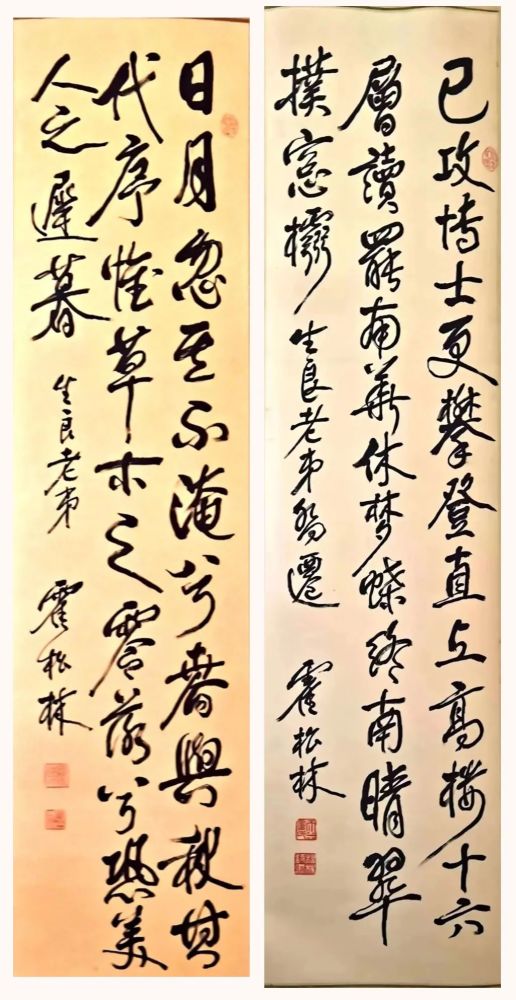 已攻博士更攀登直上高楼十六
層讀罷南華休梦蝶終南晴翠
撲窓櫺 生良老弟喬遷 霍松林
日月忽其不淹兮春與秋其
代序惟草木之零落兮恐美
人之遲暮 生良老弟 霍松林